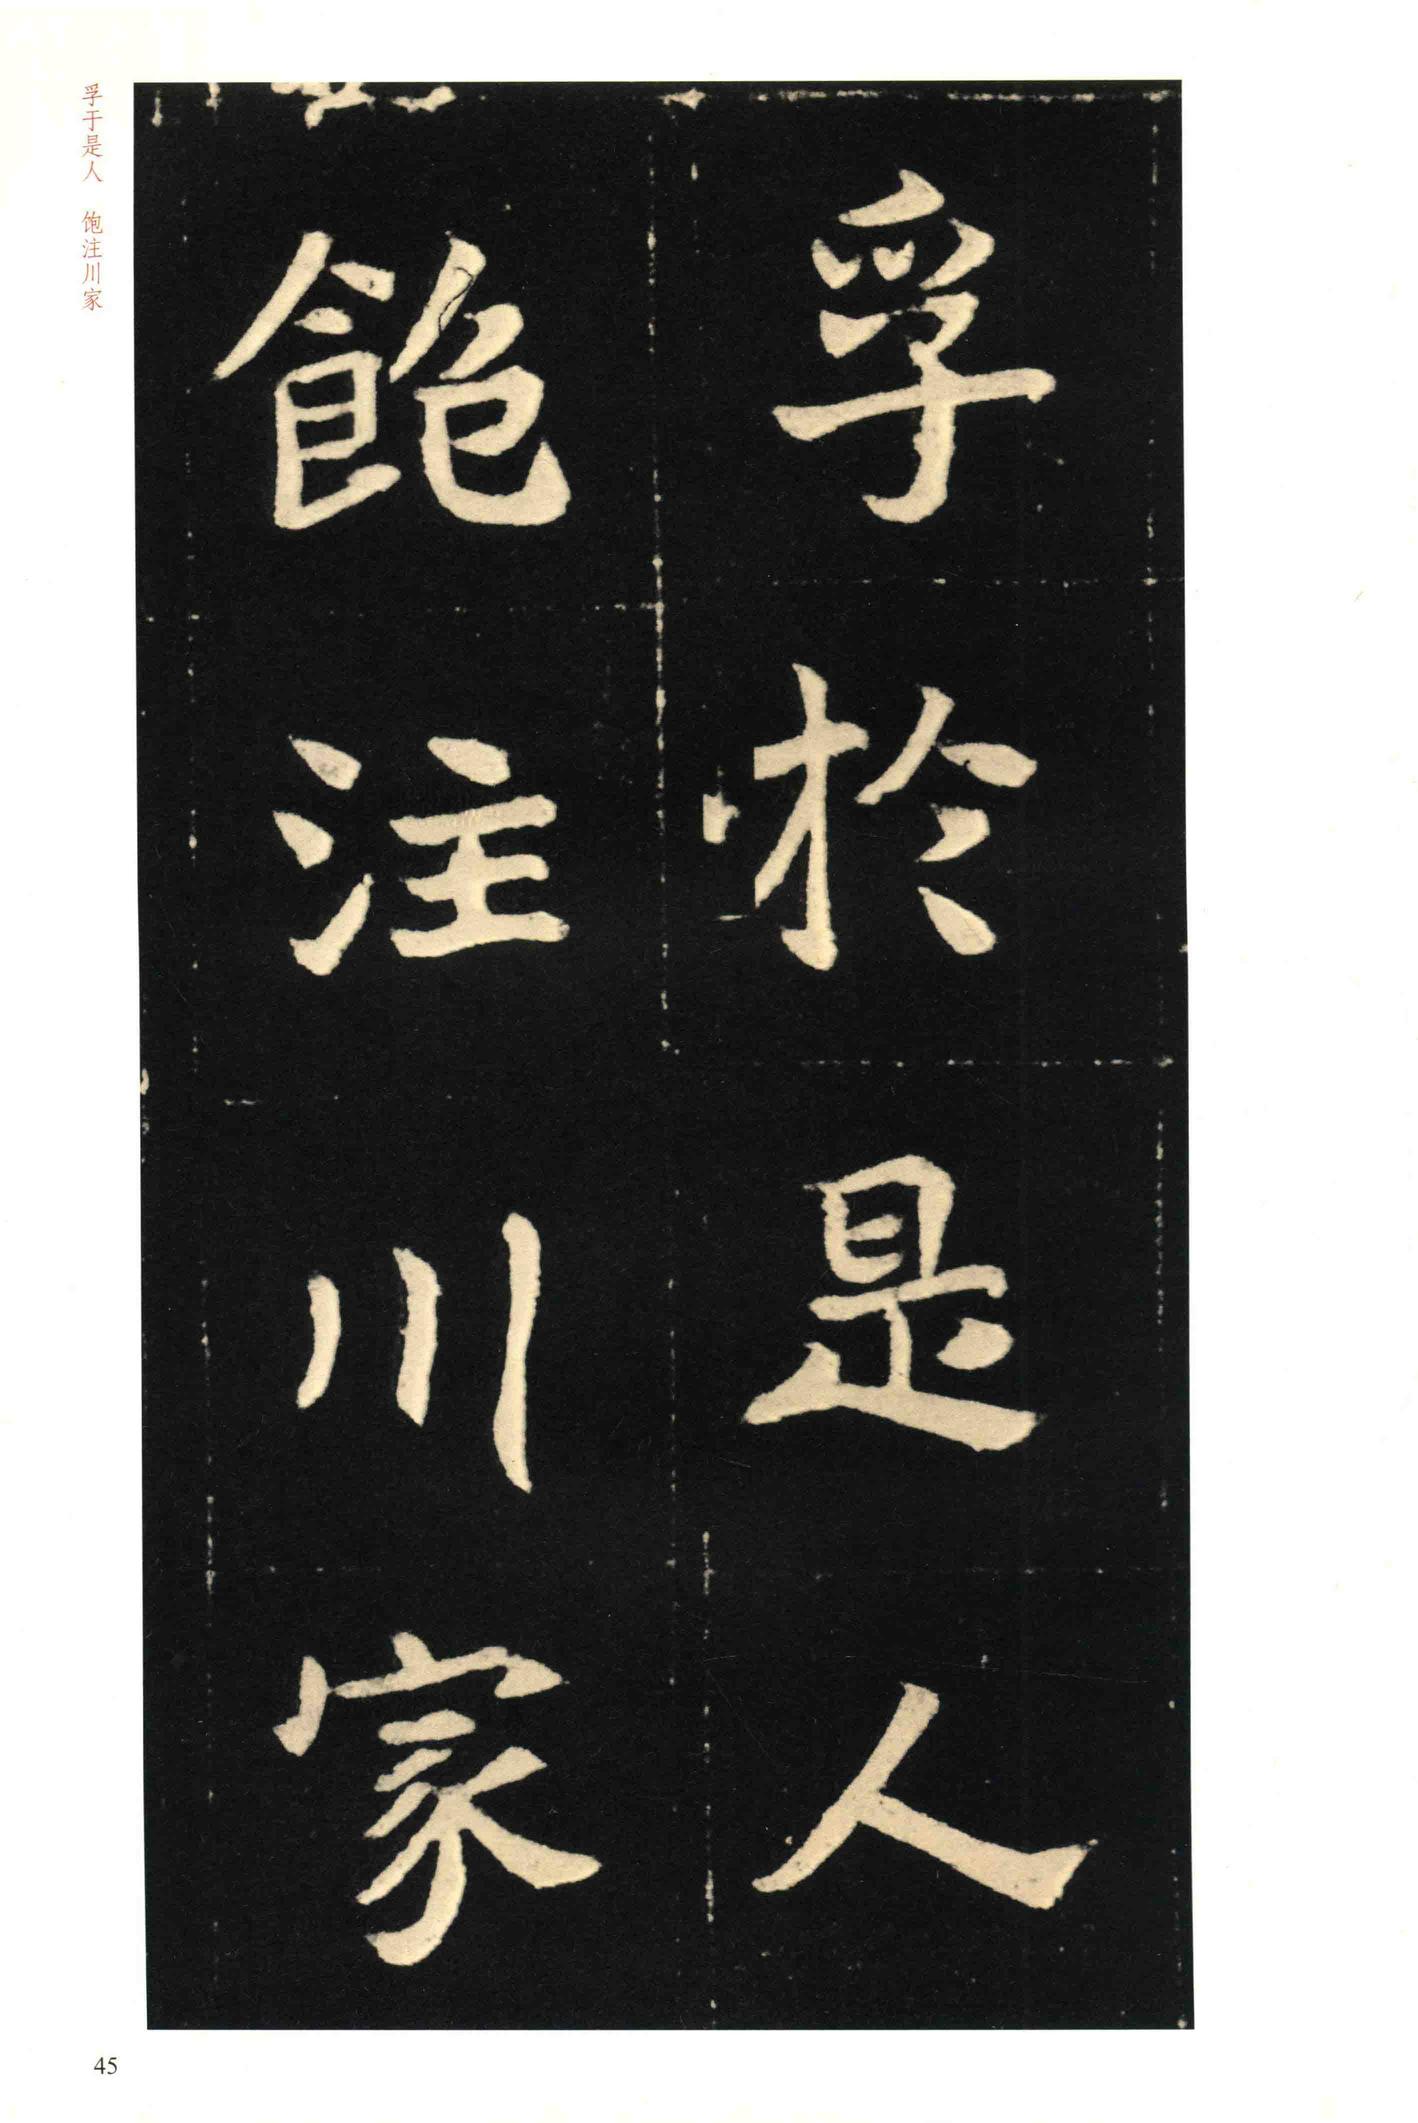 孚於是人
飽注川家
孚于是人　饱注川家
45